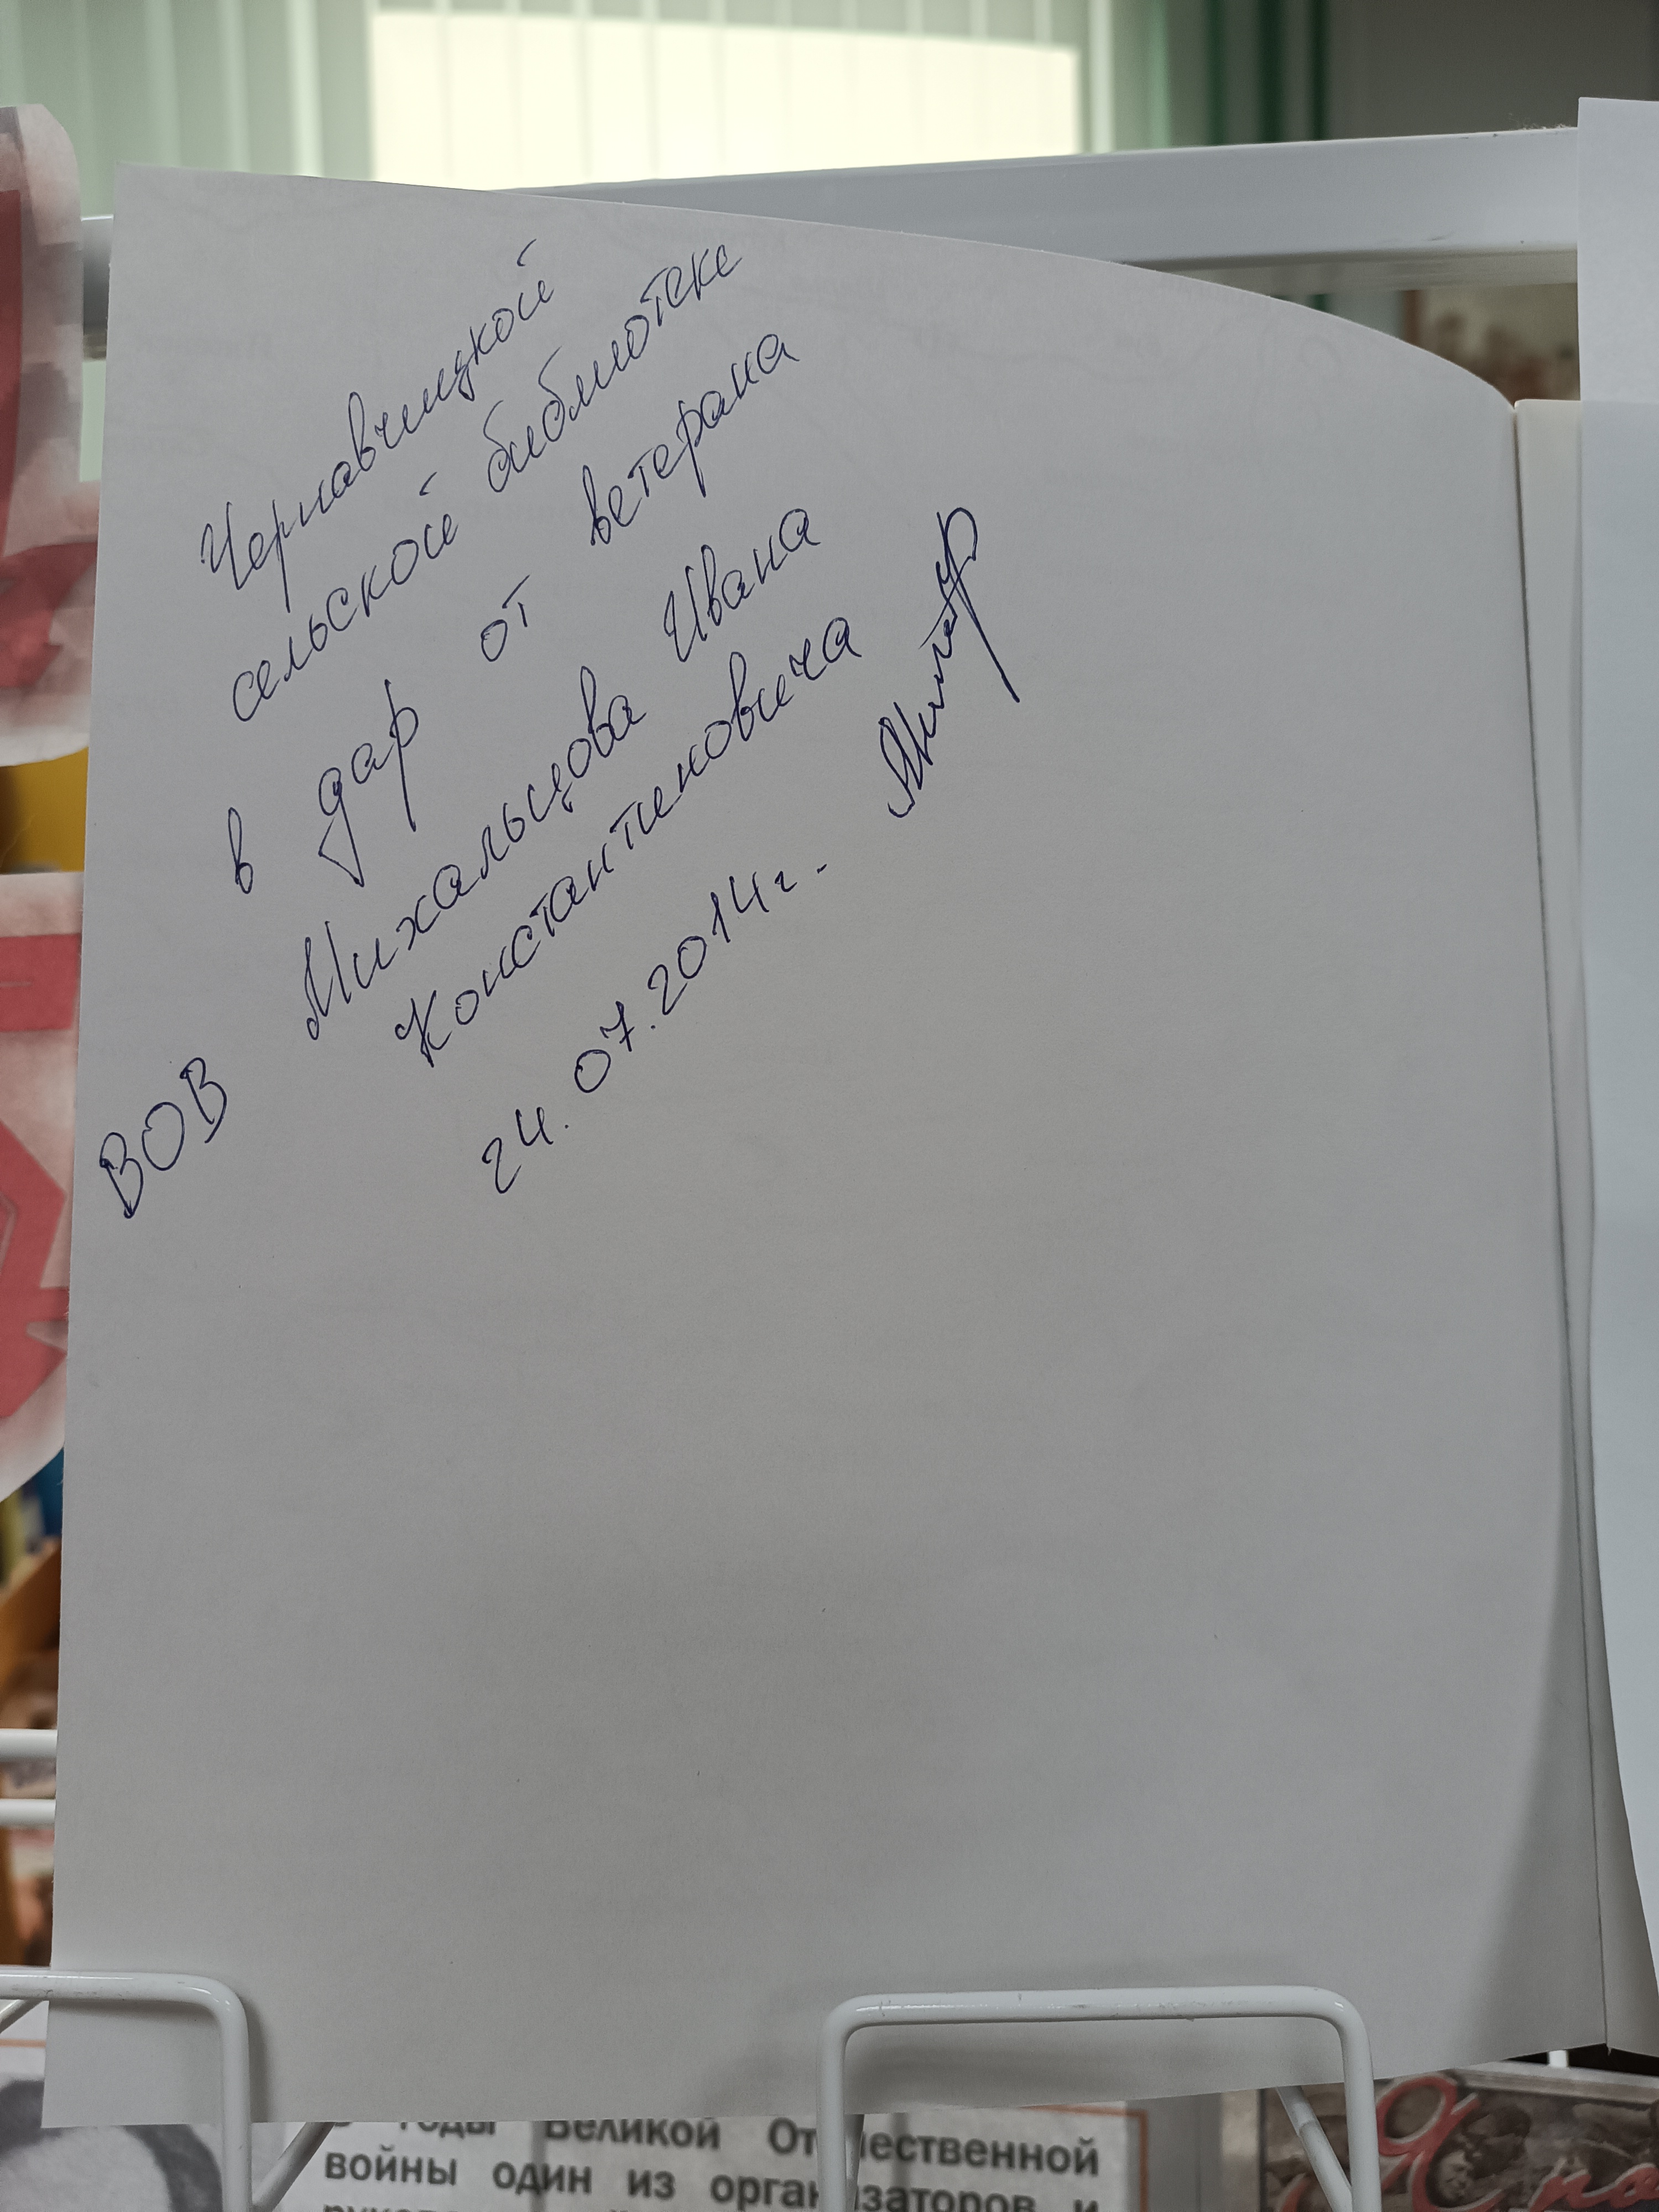 Чернавчицкой
сельской библиотеке
в дар от ветерана
ВОВ Михальцова Ивана
Константиновича
24.07.2014г.
годы Великой От ественной
войны один из орган заторов и